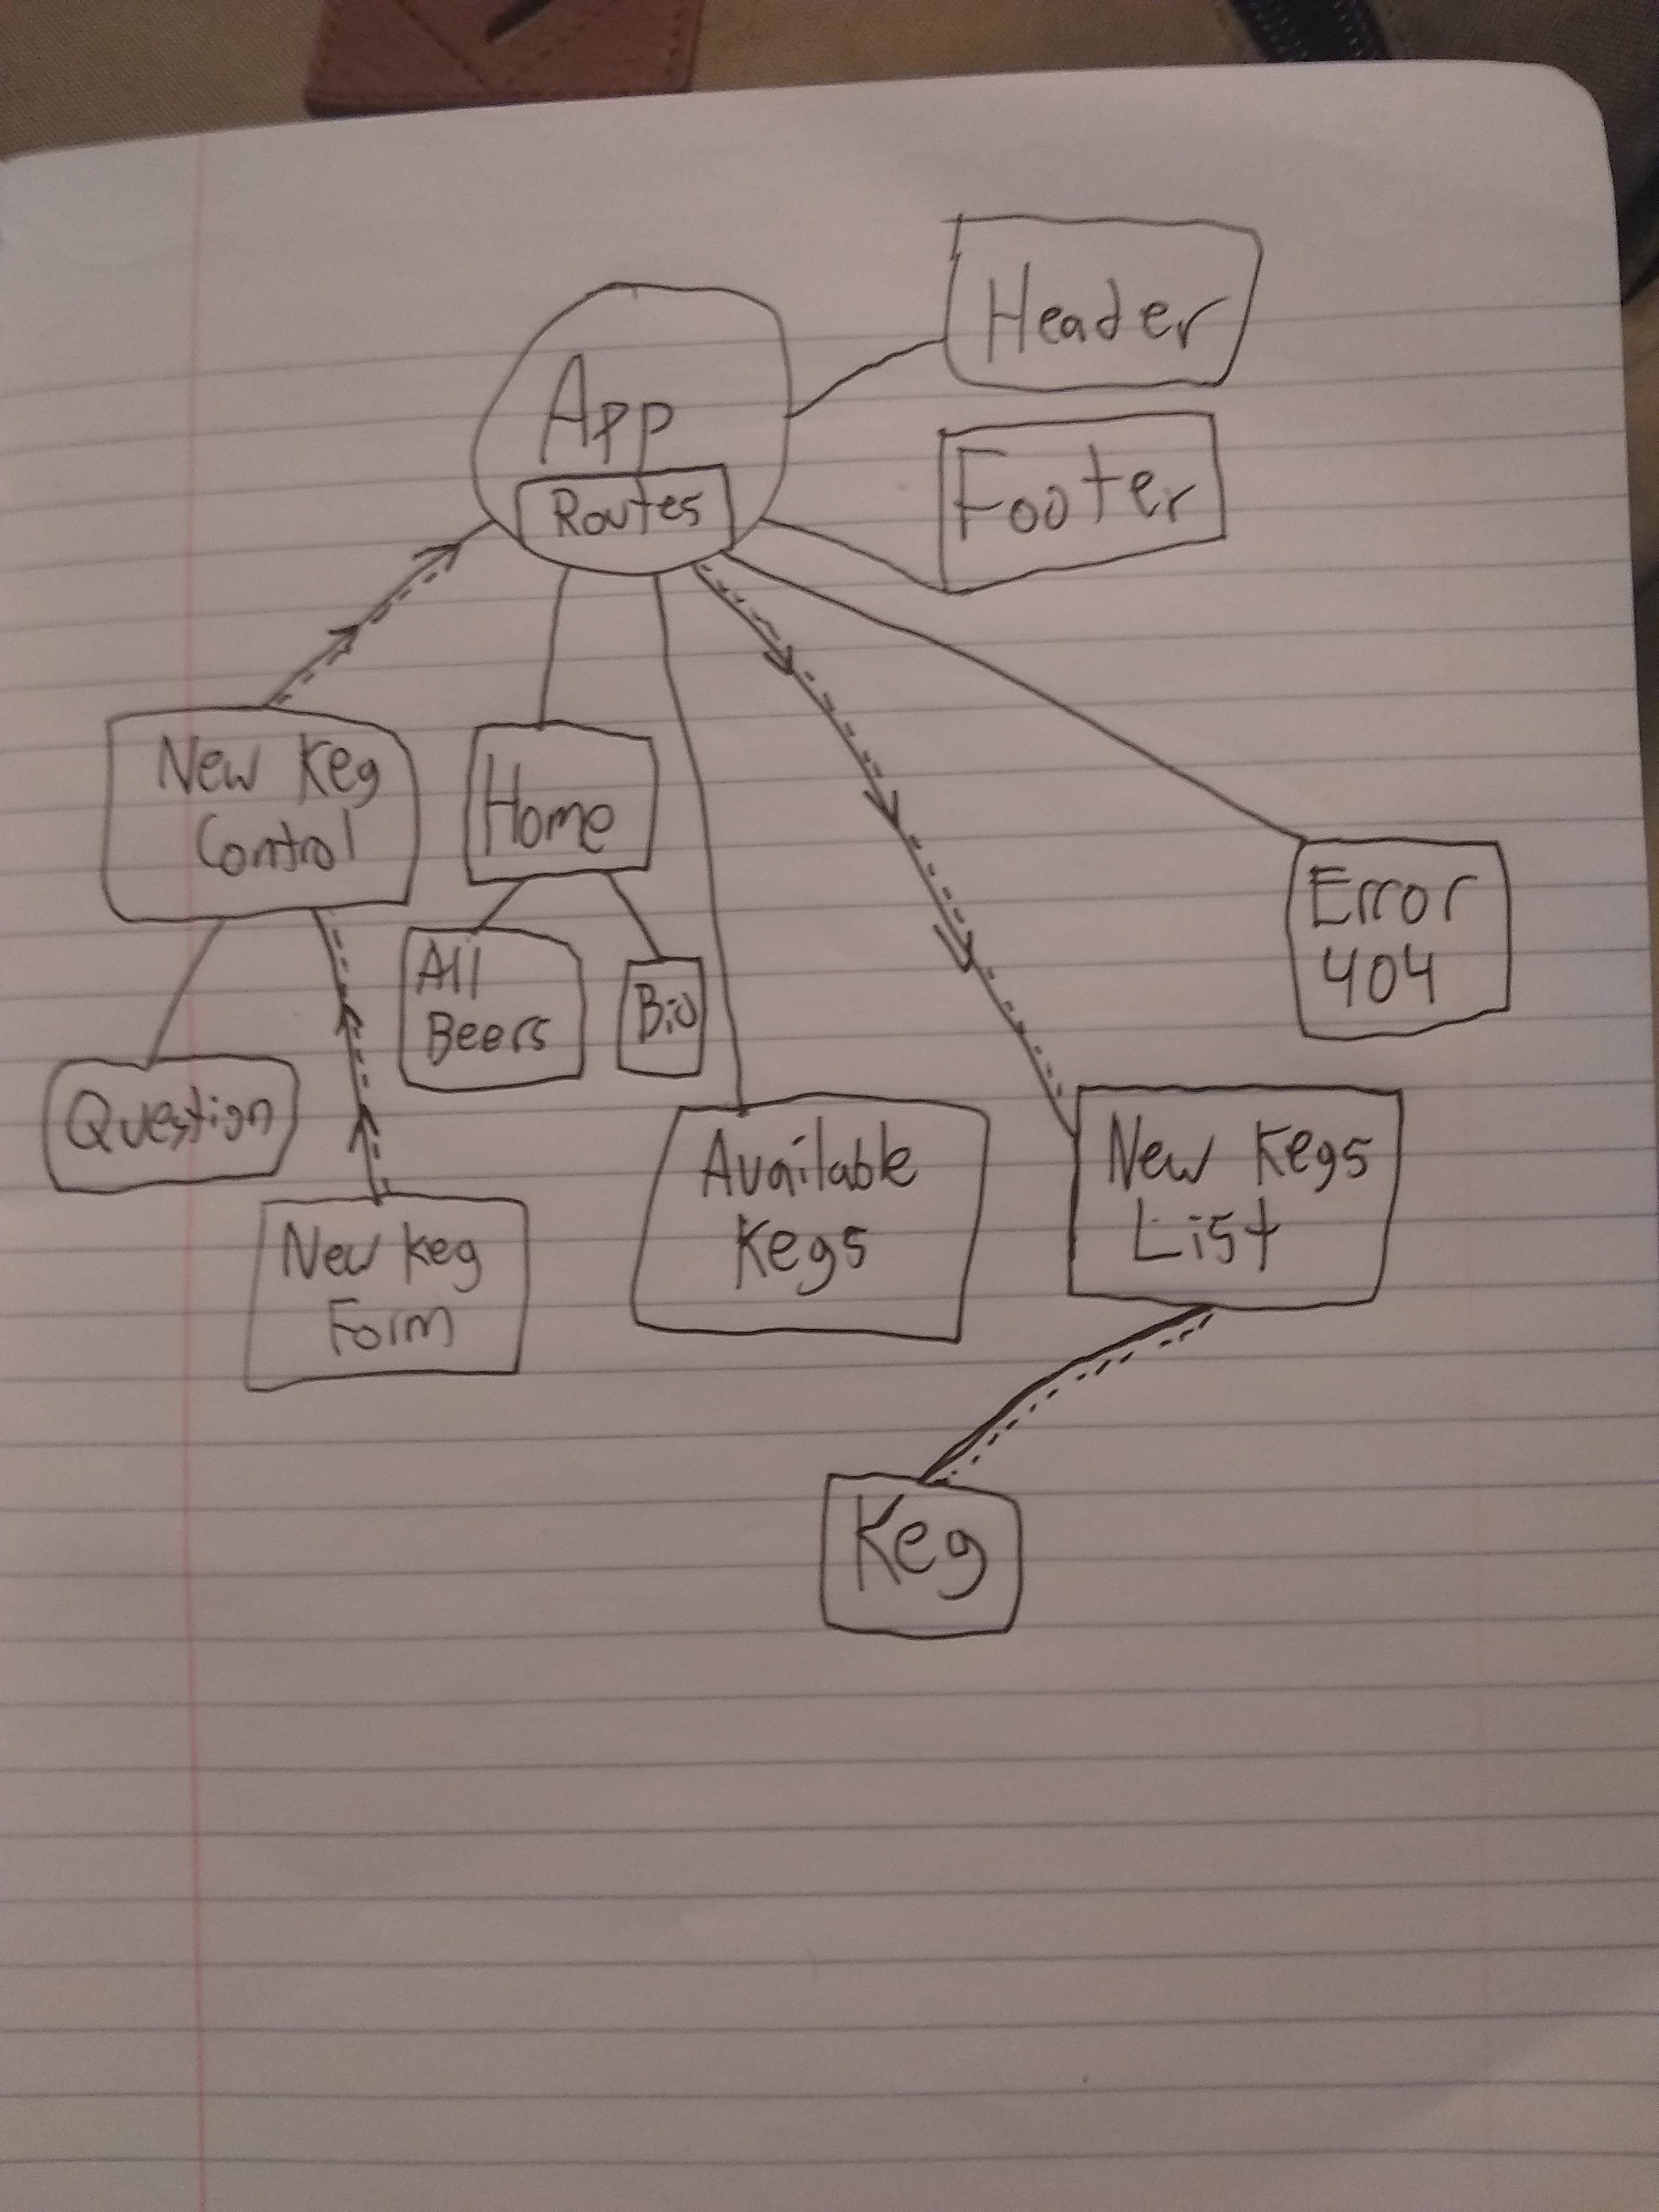 Header
App
Routes
Footer
New Keg
Control
Home
Error
404
All
Beers
Bio
Question
Available
Kegs
New Kegs
List
New Keg
Form
Keg